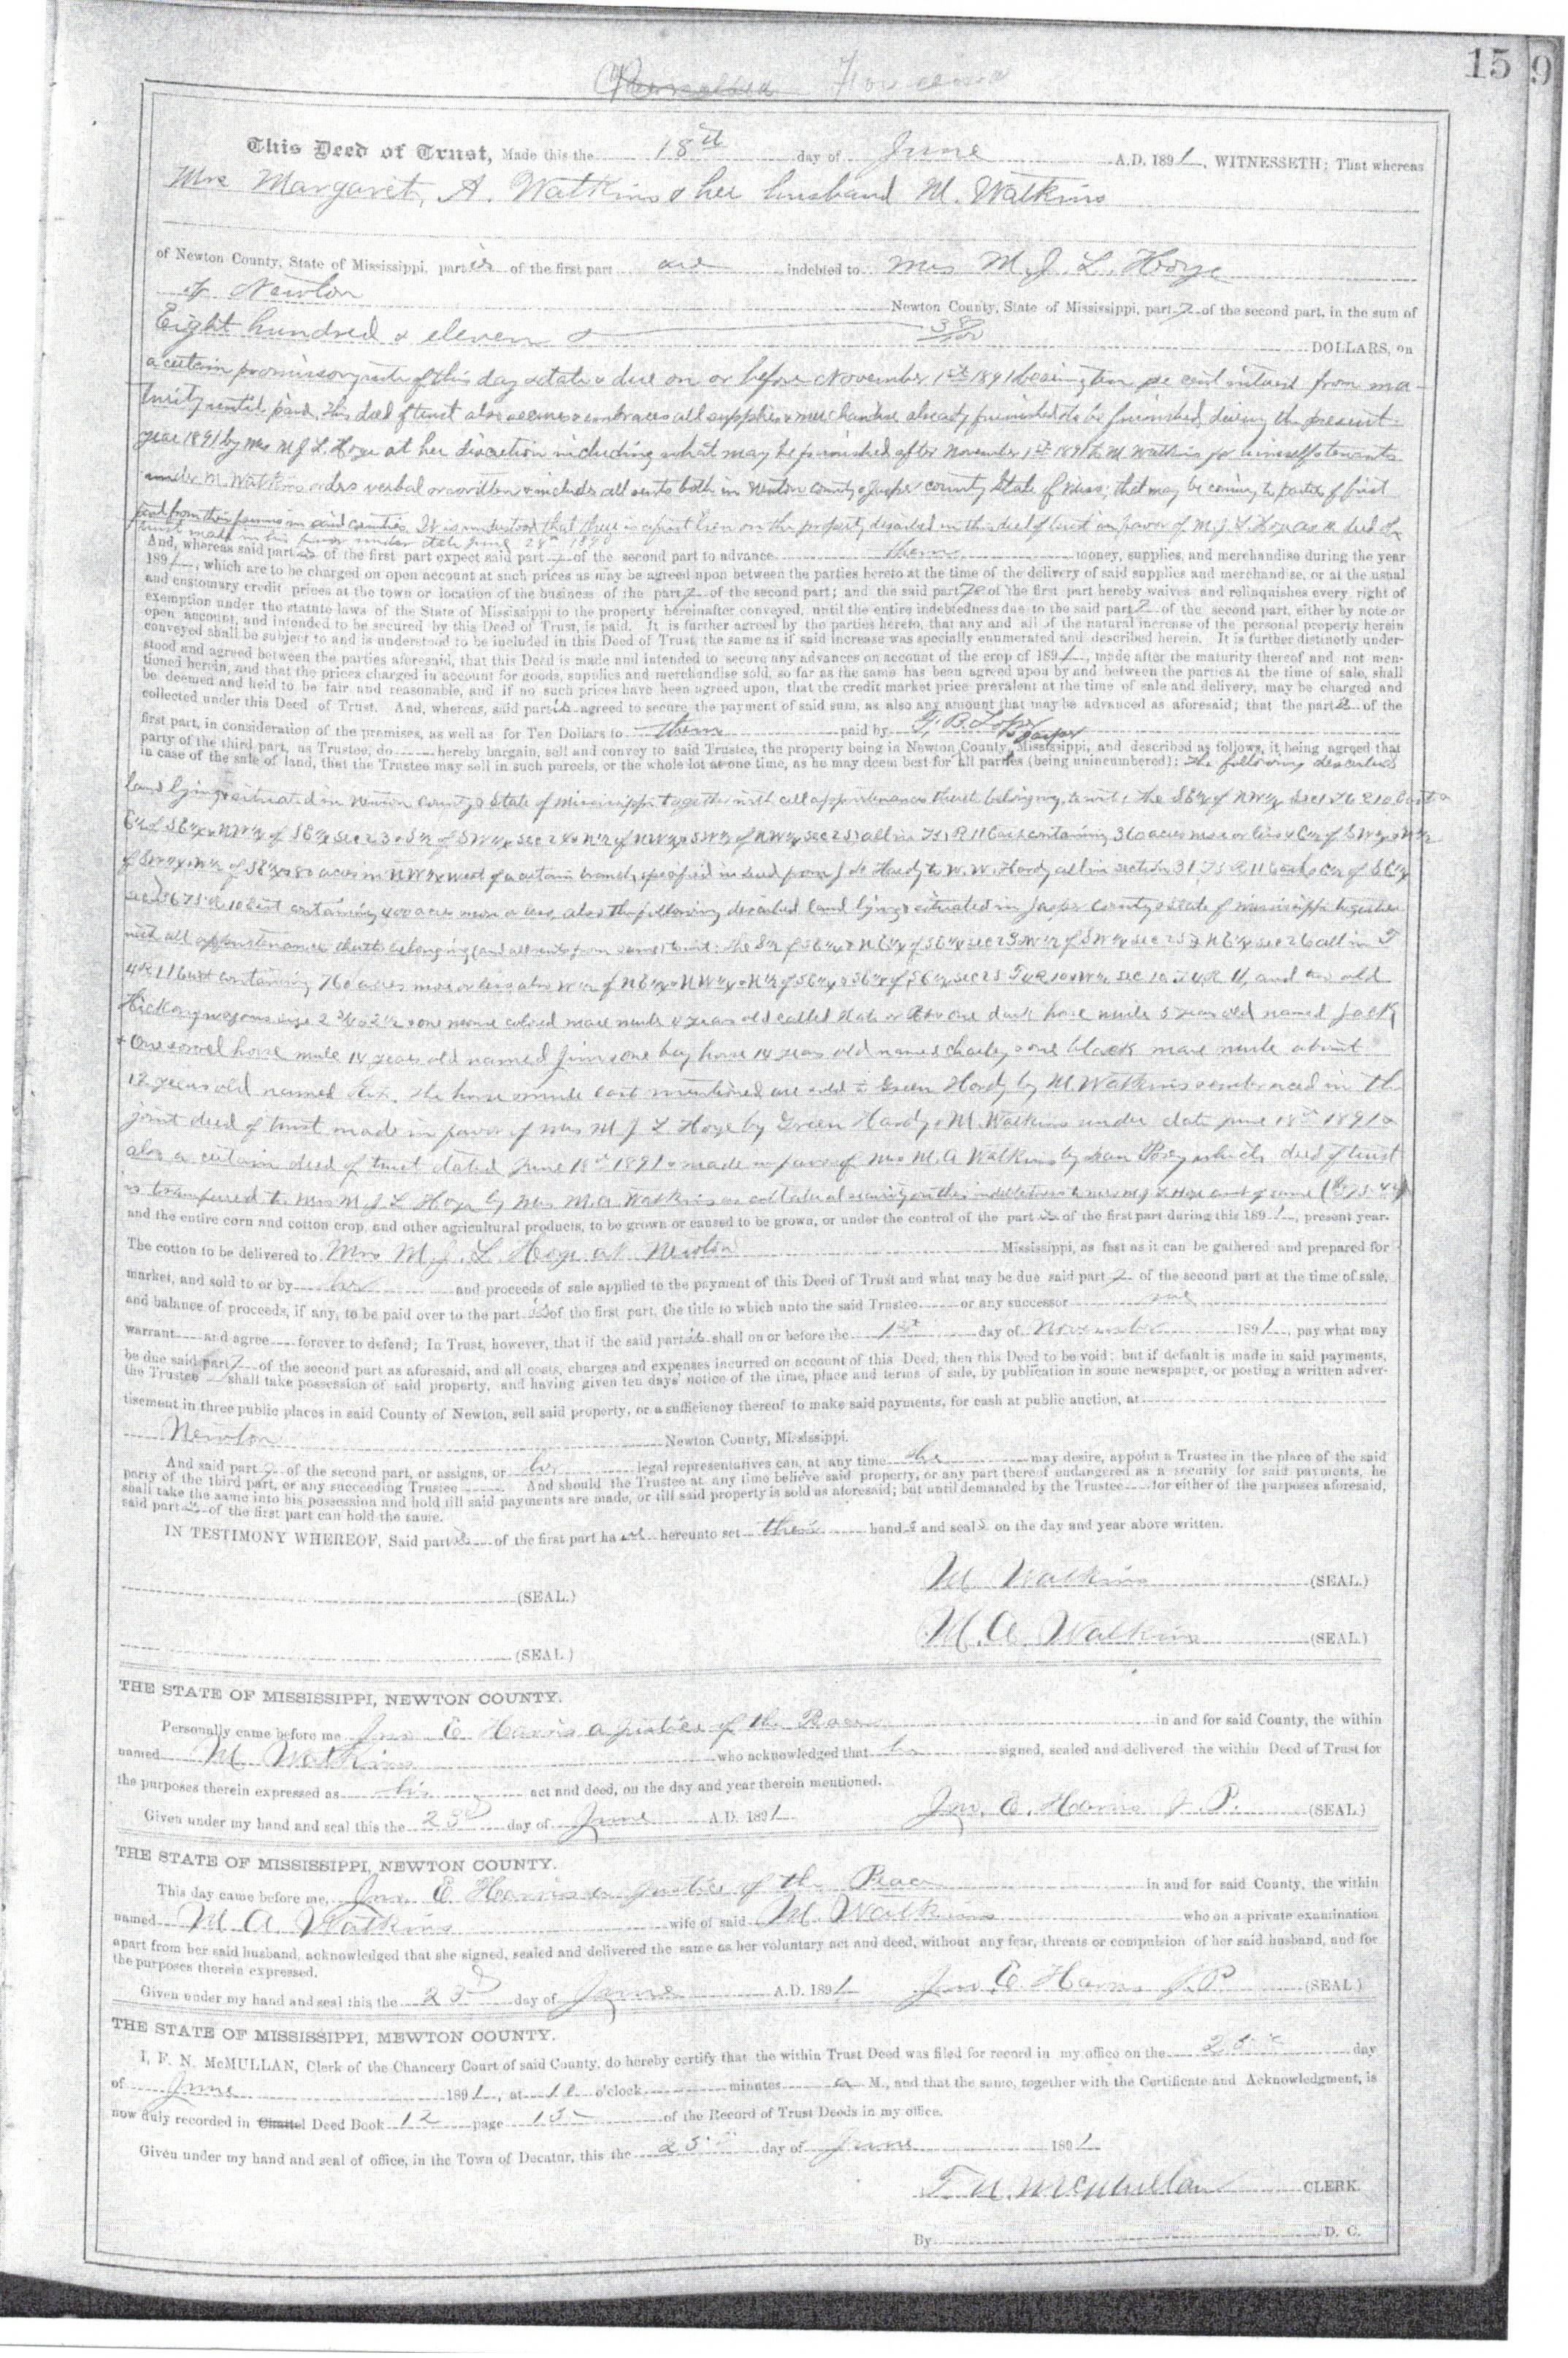 15 9
Foreclosed
This Deed of Trust, Made this the 18th day of June A.D. 1891, WITNESSETH; That whereas
Mrs Margaret, A. Watkins & her husband M. Watkins
of Newton County, State of Mississippi, parties of the first part are indebted to Mrs M. J. L. Hoye
of Newton Newton County, State of Mississippi, party of the second part, in the sum of
Eight hundred & eleven & 38/100 DOLLARS, on
a certain promissory note of this day & date & due on or before November 1st 1891 bearing ten per cent interest from ma-
turity until paid. This deed of trust also secures & embraces all supplies & merchandise already furnished & to be furnished during the present
year 1891 by Mrs M J L Hoye at her discretion including what may be furnished after November 1st 1891 to M Watkins for himself & tenants
under M. Watkins orders verbal or written & includes all rents both in Newton county & Jasper county State of Miss; that may be coming to parties of first
part from their farms in said counties. It is understood that there is a first lien on the property described in this deed of trust in favor of M. J. L. Hoye as a deed of
trust made in his favor under date June 28th 1890
And, whereas said parties of the first part expect said party of the second part to advance them money, supplies, and merchandise during the year
1891, which are to be charged on open account at such prices as may be agreed upon between the parties hereto at the time of the delivery of said supplies and merchandise, or at the usual
and customary credit prices at the town or location of the business of the party of the second part; and the said part of the first part hereby waives and relinquishes every right of
exemption under the statute laws of the State of Mississippi to the property hereinafter conveyed, until the entire indebtedness due to the said party of the second part, either by note or
open account, and intended to be secured by this Deed of Trust, is paid. It is further agreed by the parties hereto, that any and all of the natural increase of the personal property herein
conveyed shall be subject to and is understood to be included in this Deed of Trust, the same as if said increase was specially enumerated and described herein. It is further distinctly under-
stood and agreed between the parties aforesaid, that this Deed is made and intended to secure any advances on account of the crop of 1891, made after the maturity thereof and not men-
tioned herein, and that the prices charged in account for goods, supplies and merchandise sold, so far as the same has been agreed upon by and between the parties at the time of sale, shall
be deemed and held to be fair and reasonable, and if no such prices have been agreed upon, that the credit market price prevalent at the time of sale and delivery, may be charged and
collected under this Deed of Trust. And, whereas, said parties agreed to secure the payment of said sum, as also any amount that may be advanced as aforesaid; that the part of the
first part, in consideration of the premises, as well as for Ten Dollars to them paid by
party of the third part, as Trustee, do hereby bargain, sell and convey to said Trustee, the property being in Newton County, & Jasper Mississippi, and described as follows, it being agreed that
in case of the sale of land, that the Trustee may sell in such parcels, or the whole lot at one time, as he may deem best for all parties (being unincumbered): The following described
land lying & situated in Newton County & State of Mississippi together with all appurtenances thereto belonging, to wit: The SE¼ of NW¼ Sec 1 T6 R10 East &
SE¼ & NW¼ of SE¼ Sec 23 & S½ of SW¼ Sec 24 & N½ of NW¼ & SW¼ of NW¼ Sec 25 all in R 11 East containing 360 acres more or less &
of SW¼ & W½ of SE¼ & 80 acres in NW¼ west of a certain branch, specified in deed from Hardy to W. W. Hardy all in section 31 T5 R 11 East
containing 400 acres more or less, also the following described land lying & situated in Jasper County & State of Mississippi together
with all appurtenances thereto belonging (and all rents from same) to wit:
4 R 11 East containing 760 acres more or less, also and two old
Hickory wagons size one mouse colored mare mule 4 years old called one dark horse mule 5 years old named Jack
& One sorrel horse mule 14 years old named Jim & one bay horse 14 years old named Charley & one black mare mule about
12 years old named the horse & mule last mentioned are sold to Green Hardy by M. Watkins & embraced in the
joint deed of trust made in favor of Mrs M J L Hoye by Green Hardy & M. Watkins under date June 18th 1891 &
also a certain deed of trust dated June 18th 1891 & made in favor of Mrs M. A Watkins by which deed of trust
is transferred to Mrs M J L Hoye by Mrs M. A. Watkins as collateral security on this indebtedness to Mrs M J L Hoye
and the entire corn and cotton crop, and other agricultural products, to be grown or caused to be grown, or under the control of the parties of the first part during this 1891, present year.
The cotton to be delivered to Mrs M. J. L Hoye at Newton Mississippi, as fast as it can be gathered and prepared for
market, and sold to or by her and proceeds of sale applied to the payment of this Deed of Trust and what may be due said party of the second part at the time of sale,
and balance of proceeds, if any, to be paid over to the parties of the first part, the title to which unto the said Trustee or any successor we
warrant and agree forever to defend; In Trust, however, that if the said parties shall on or before the 1st day of November 1891, pay what may
be due said party of the second part as aforesaid, and all costs, charges and expenses incurred on account of this Deed, then this Deed to be void; but if default is made in said payments,
the Trustee shall take possession of said property, and having given ten days' notice of the time, place and terms of sale, by publication in some newspaper, or posting a written adver-
tisement in three public places in said County of Newton, sell said property, or a sufficiency thereof to make said payments, for cash at public auction, at
Newton Newton County, Mississippi.
And said party of the second part, or assigns, or her legal representatives can, at any time she may desire, appoint a Trustee in the place of the said
party of the third part, or any succeeding Trustee. And should the Trustee at any time believe said property, or any part thereof endangered as a security for said payments, he
shall take the same into his possession and hold till said payments are made, or till said property is sold as aforesaid; but until demanded by the Trustee for either of the purposes aforesaid,
said parties of the first part can hold the same.
IN TESTIMONY WHEREOF, Said parties of the first part have hereunto set their hands and seals on the day and year above written.
(SEAL.) M Watkins (SEAL.)
(SEAL.) M. A. Watkins (SEAL.)
THE STATE OF MISSISSIPPI, NEWTON COUNTY.
Personally came before me Jno E Harris a Justice of the Peace in and for said County, the within
named M Watkins who acknowledged that he signed, sealed and delivered the within Deed of Trust for
the purposes therein expressed as his act and deed, on the day and year therein mentioned.
Given under my hand and seal this the 23d day of June A.D. 1891 Jno. E. Harris J. P. (SEAL)
THE STATE OF MISSISSIPPI, NEWTON COUNTY.
This day came before me, Jno. E Harris a Justice of the Peace in and for said County, the within
named M A Watkins wife of said M. Watkins who on a private examination
apart from her said husband, acknowledged that she signed, sealed and delivered the same as her voluntary act and deed, without any fear, threats or compulsion of her said husband, and for
the purposes therein expressed.
Given under my hand and seal this the 23d day of June A.D. 1891 Jno E. Harris J.P. (SEAL)
THE STATE OF MISSISSIPPI, MEWTON COUNTY.
I, F. N. McMULLAN, Clerk of the Chancery Court of said County, do hereby certify that the within Trust Deed was filed for record in my office on the day
of June 1891, at o'clock minutes a M., and that the same, together with the Certificate and Acknowledgment, is
now duly recorded in Chattel Deed Book 12 page of the Record of Trust Deeds in my office.
Given under my hand and seal of office, in the Town of Decatur, this the day of June 1891
F N. McMullan CLERK.
By D. C.